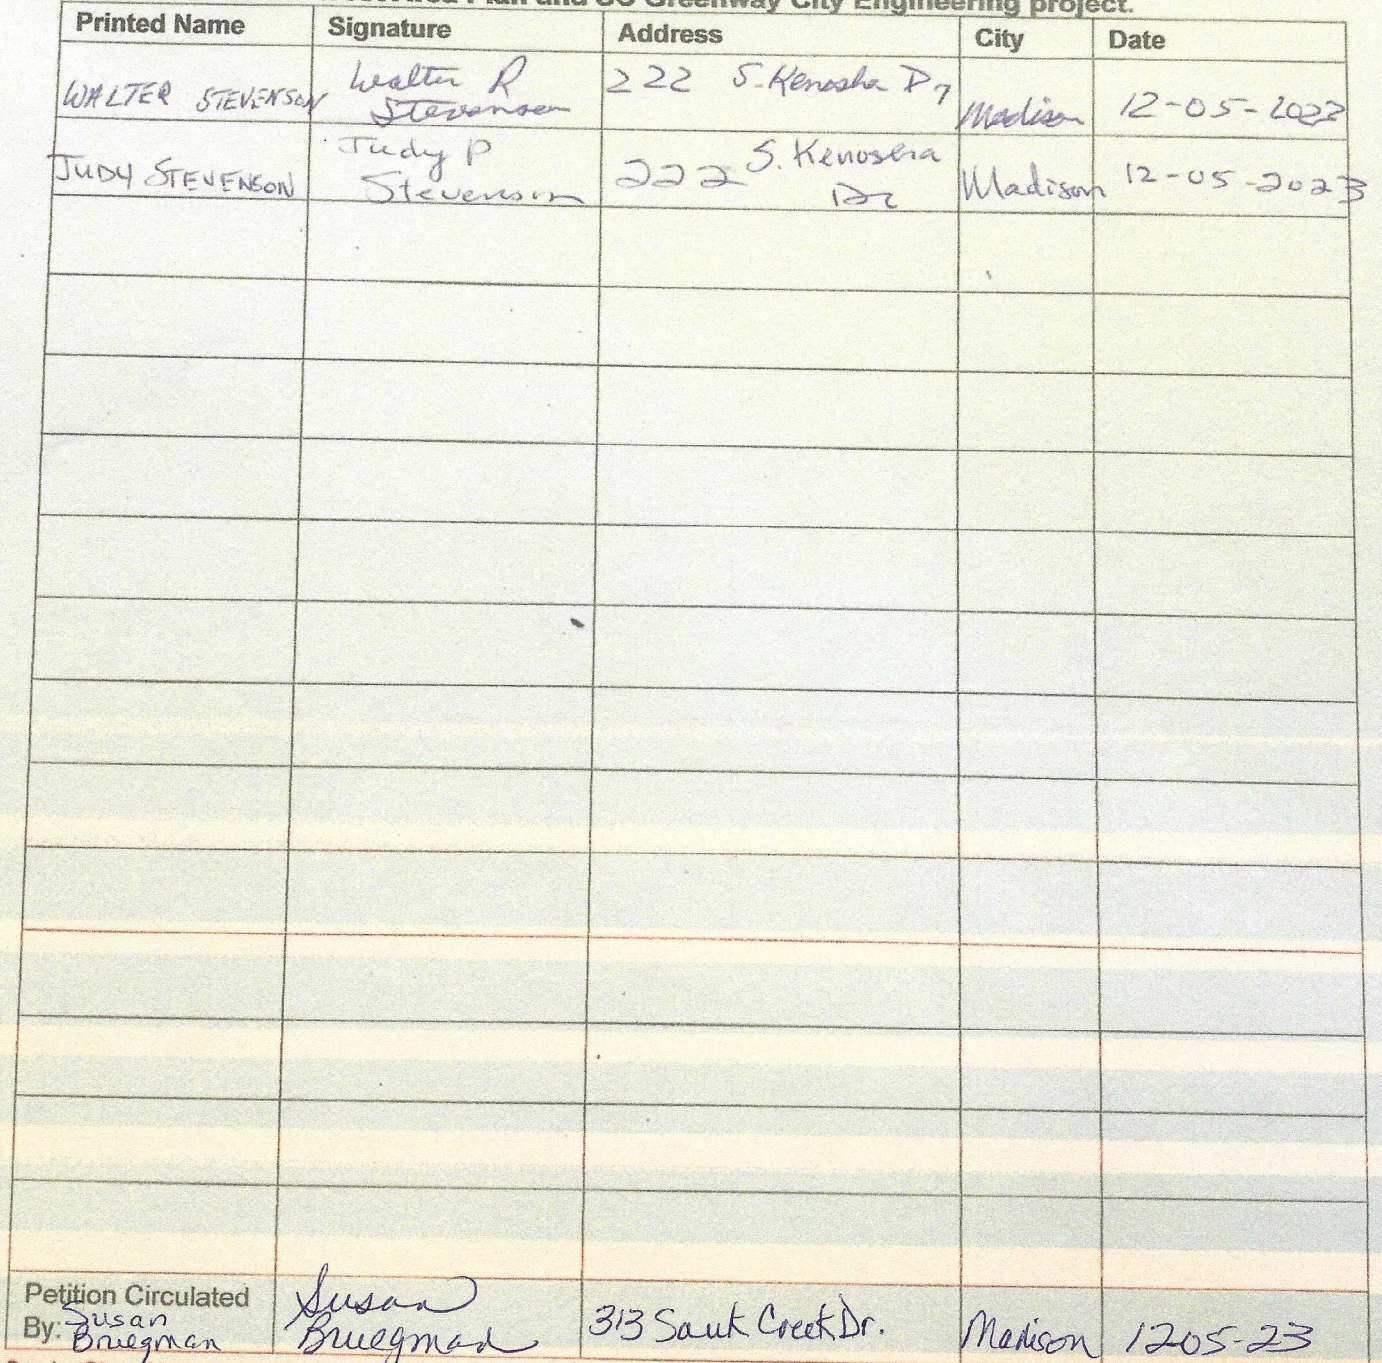 Plan and SC Greenway City Engineering project.
Printed Name Signature Address City Date
WALTER STEVENSON Walter R Stevenson 222 S. Kenosha Dr Madison 12-05-2023
JUDY STEVENSON Judy P Stevenson 222 S. Kenosha Dr Madison 12-05-2023
Petition Circulated
By: Susan Bruegman Susan Bruegman 313 Sauk Creek Dr. Madison 1205-23